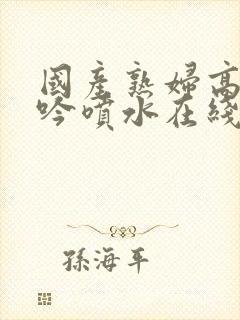 國產熟婦高
吟噴水在綫
孫海平